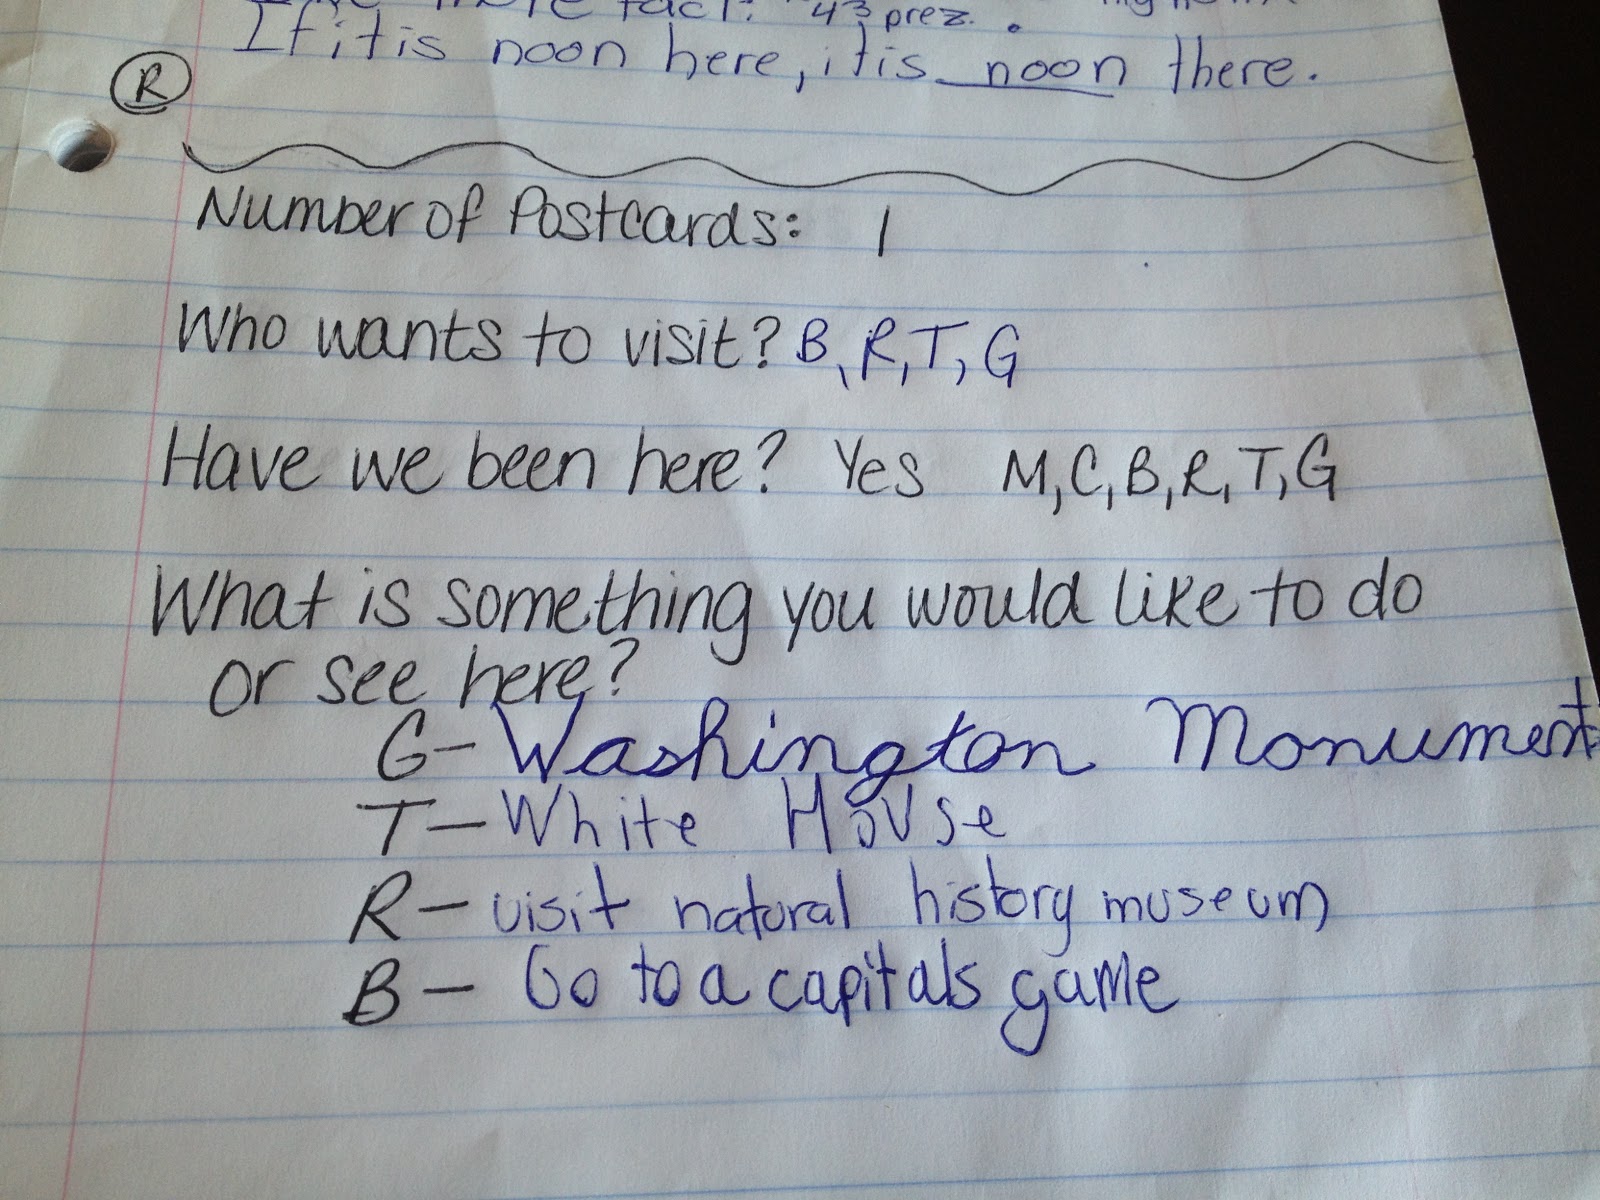 fact: 43 prez.
If it is noon here, it is noon there.
R
Number of Postcards: 1
Who wants to visit? B, R, T, G
Have we been here? Yes M, C, B, R, T, G
What is something you would like to do
or see here?
G- Washington Monument
T- White House
R- visit natural history museum
B- Go to a capitals game